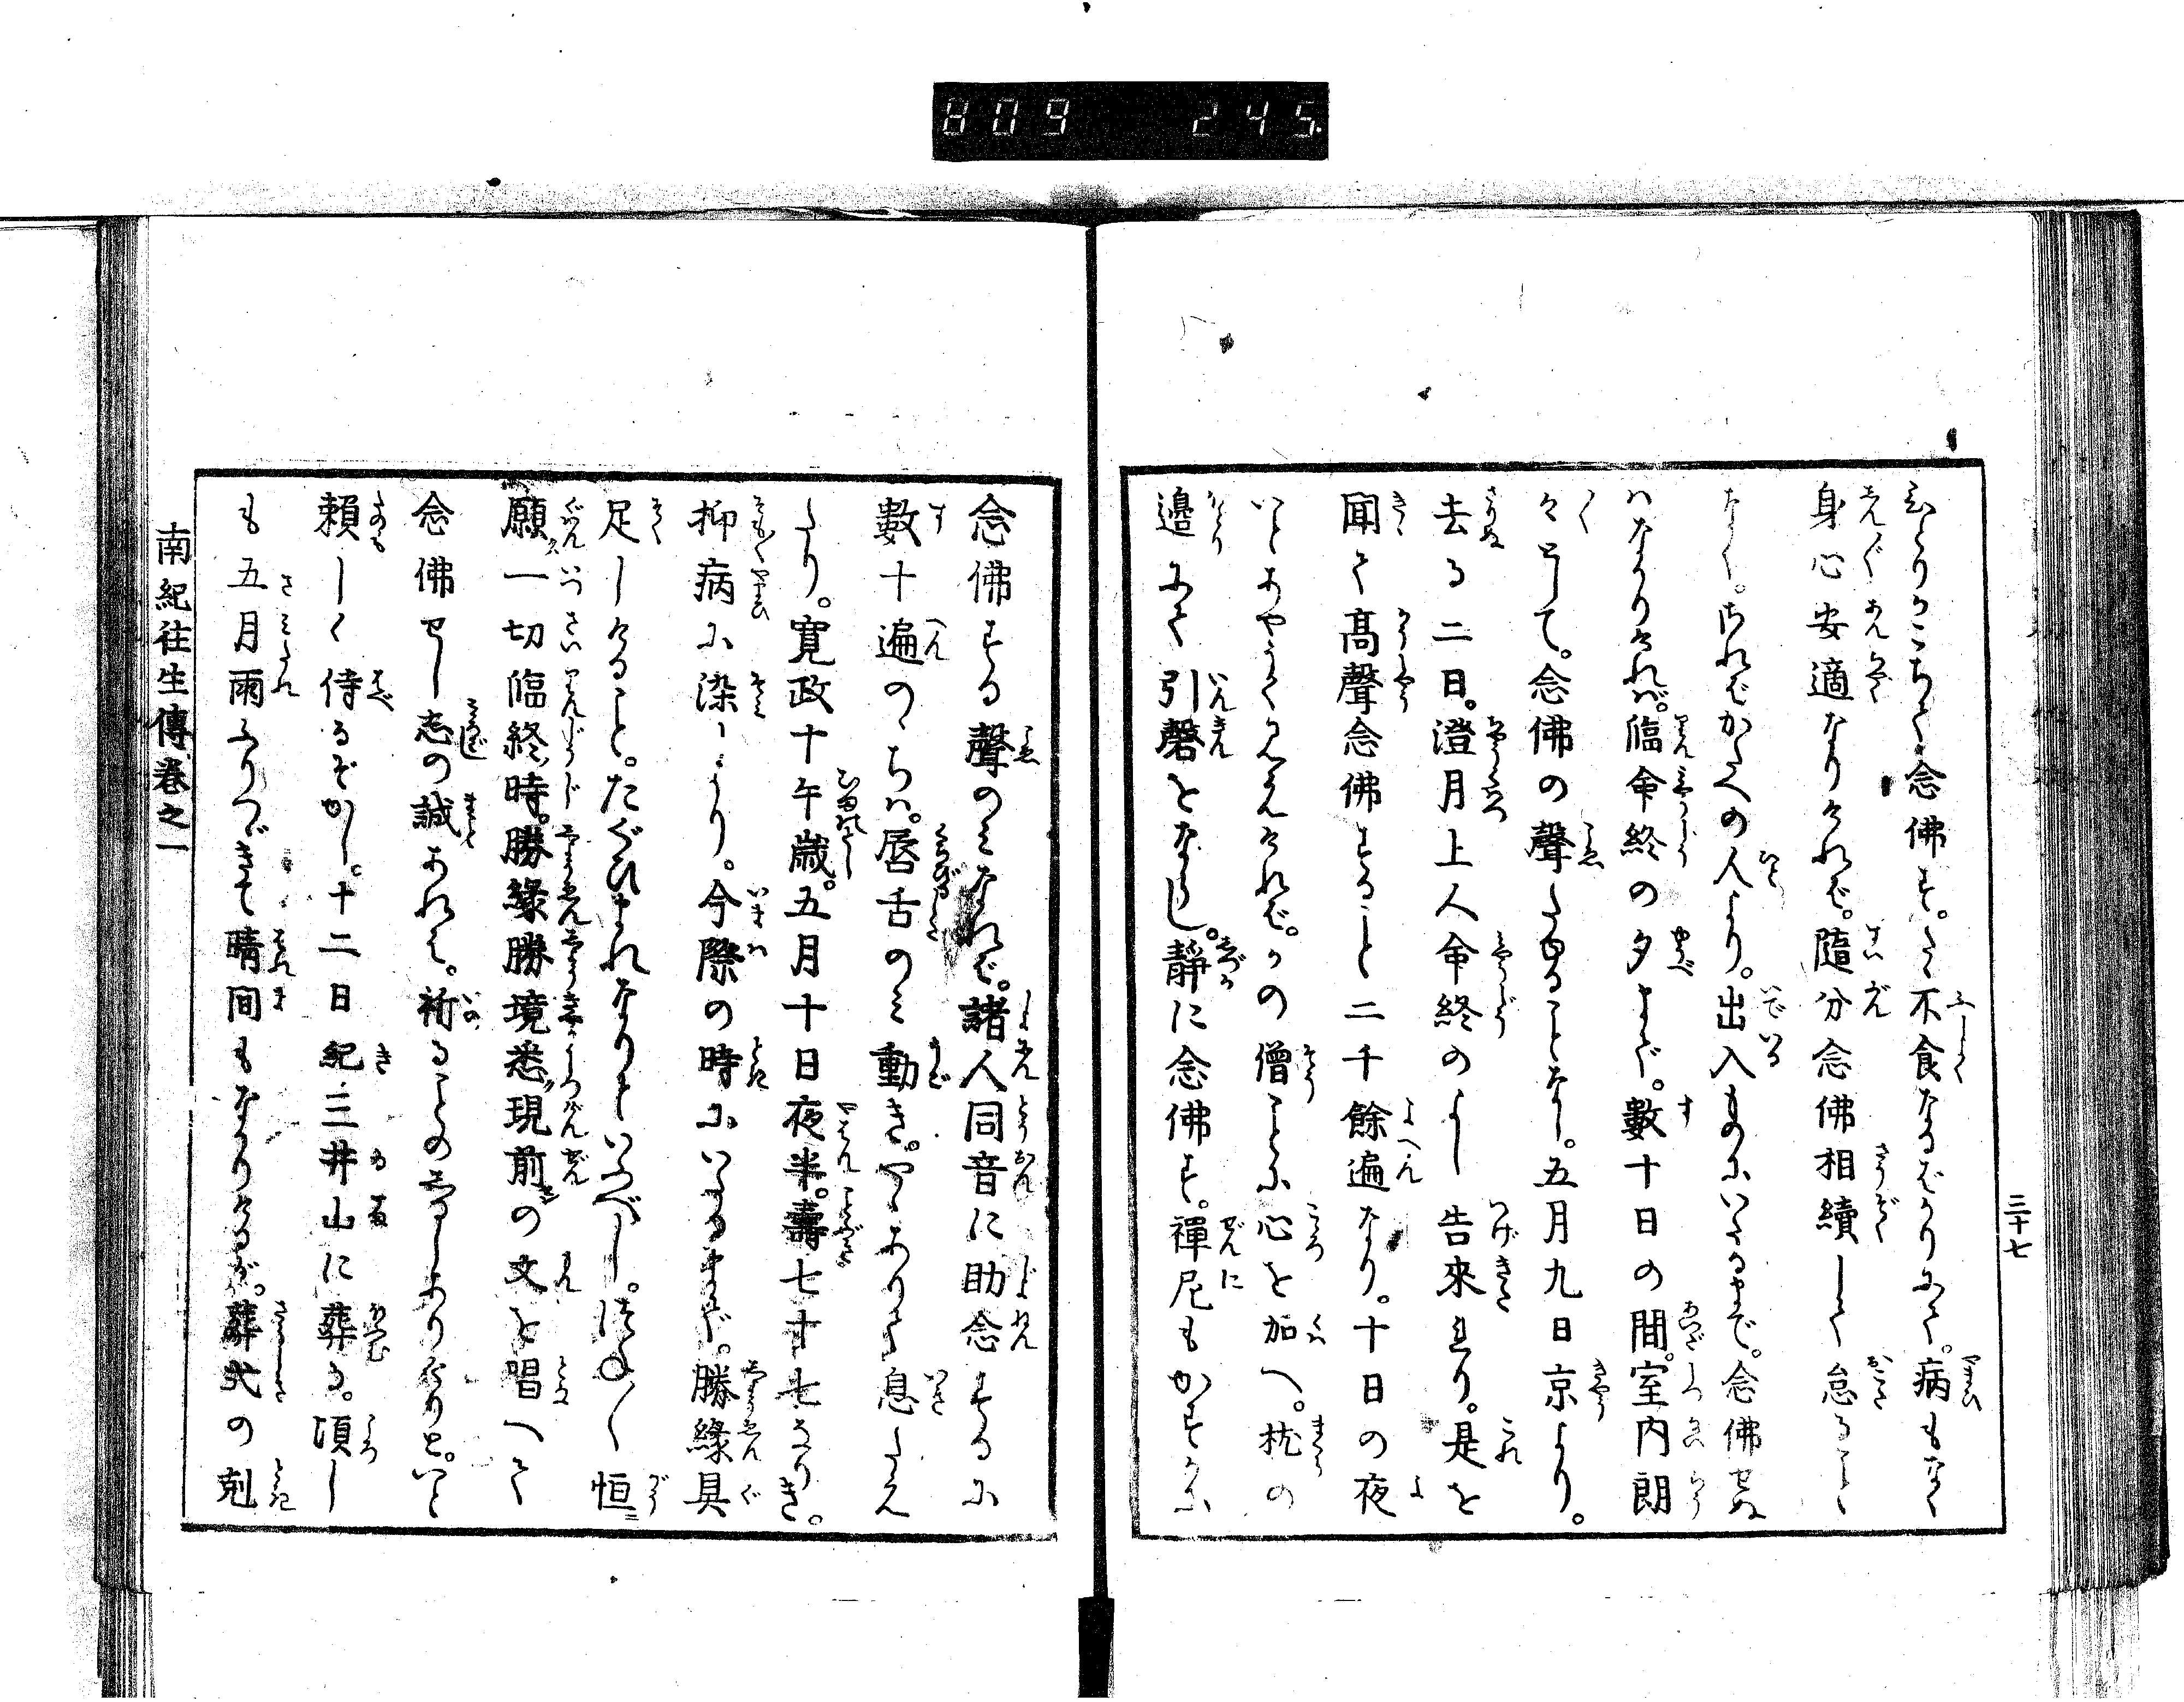 809 245
三十七
ひとりこゝちく念佛す。たゝ不食なるばかりにて。病もなく
身心安適なりけれど。隨分念佛相續して怠ること
なく。されどかたへの人より。出入ものにいたるまで。念佛せぬ
ハなかりけれバ。臨命終の夕まで。數十日の間。室内朗
々として。念佛の聲たゆることなし。五月九日京より。
去る二日。澄月上人命終のよし告來れり。是を
聞て高聲念佛すること二千餘遍なり。十日の夜
いとあやうくみえけれど。かの僧ことに心を加へ。枕の
邊にて引磬をならし。靜に念佛す。禪尼もかすかに
念佛する聲のミなれど。諸人同音に助念するに
數十遍のゝちハ。唇舌のミ動き。やゝありて息たえ
たり。寛政十午歳。五月十日夜半。壽七十七なりき。
抑病に染しより。今際の時に。いたるまで。勝緣具
足しけること。たぐひまれなりといふべし。つね〳〵恒
願一切臨終時。勝緣勝境悉現前の文を唱へて
念佛せし志の誠あれば。祈ることのしるしありけりと。いと
賴しく侍るぞかし。十二日紀三井山に葬る。頃し
も五月雨ふりつゞきて晴間もなかりけるが。葬式の剋
南紀往生傳卷之一